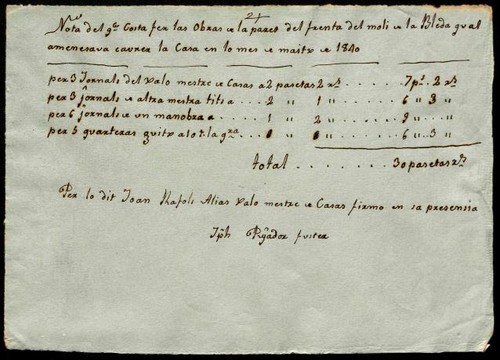 21
Nota del q.e Costa fer las Obras de la paret del frente del moli de la Bleda qual
amenesava caurer la Casa en lo mes de maitx de 1840
per 3 Jornals del Xalo mestre de Casas a 2 pasetas 2 rs. 7 ps. 2 rs.
per 5 jornals de altra mestra tits a . . . 2 " 1 " . . . . . . 6 " 3 "
per 6 jornals de un manobra a . . . . 1 " 2 " . . . . . . 9 " ...
per 5 quarteras a lo 1. la qra. 1 " 1 " . . . . . . 6 " 3 "
total . . . . . . 30 pasetas 2 rs.
Per lo dit Joan Rafols Alias Xalo mestre de Casas firmo en sa presensia
Jph fuster